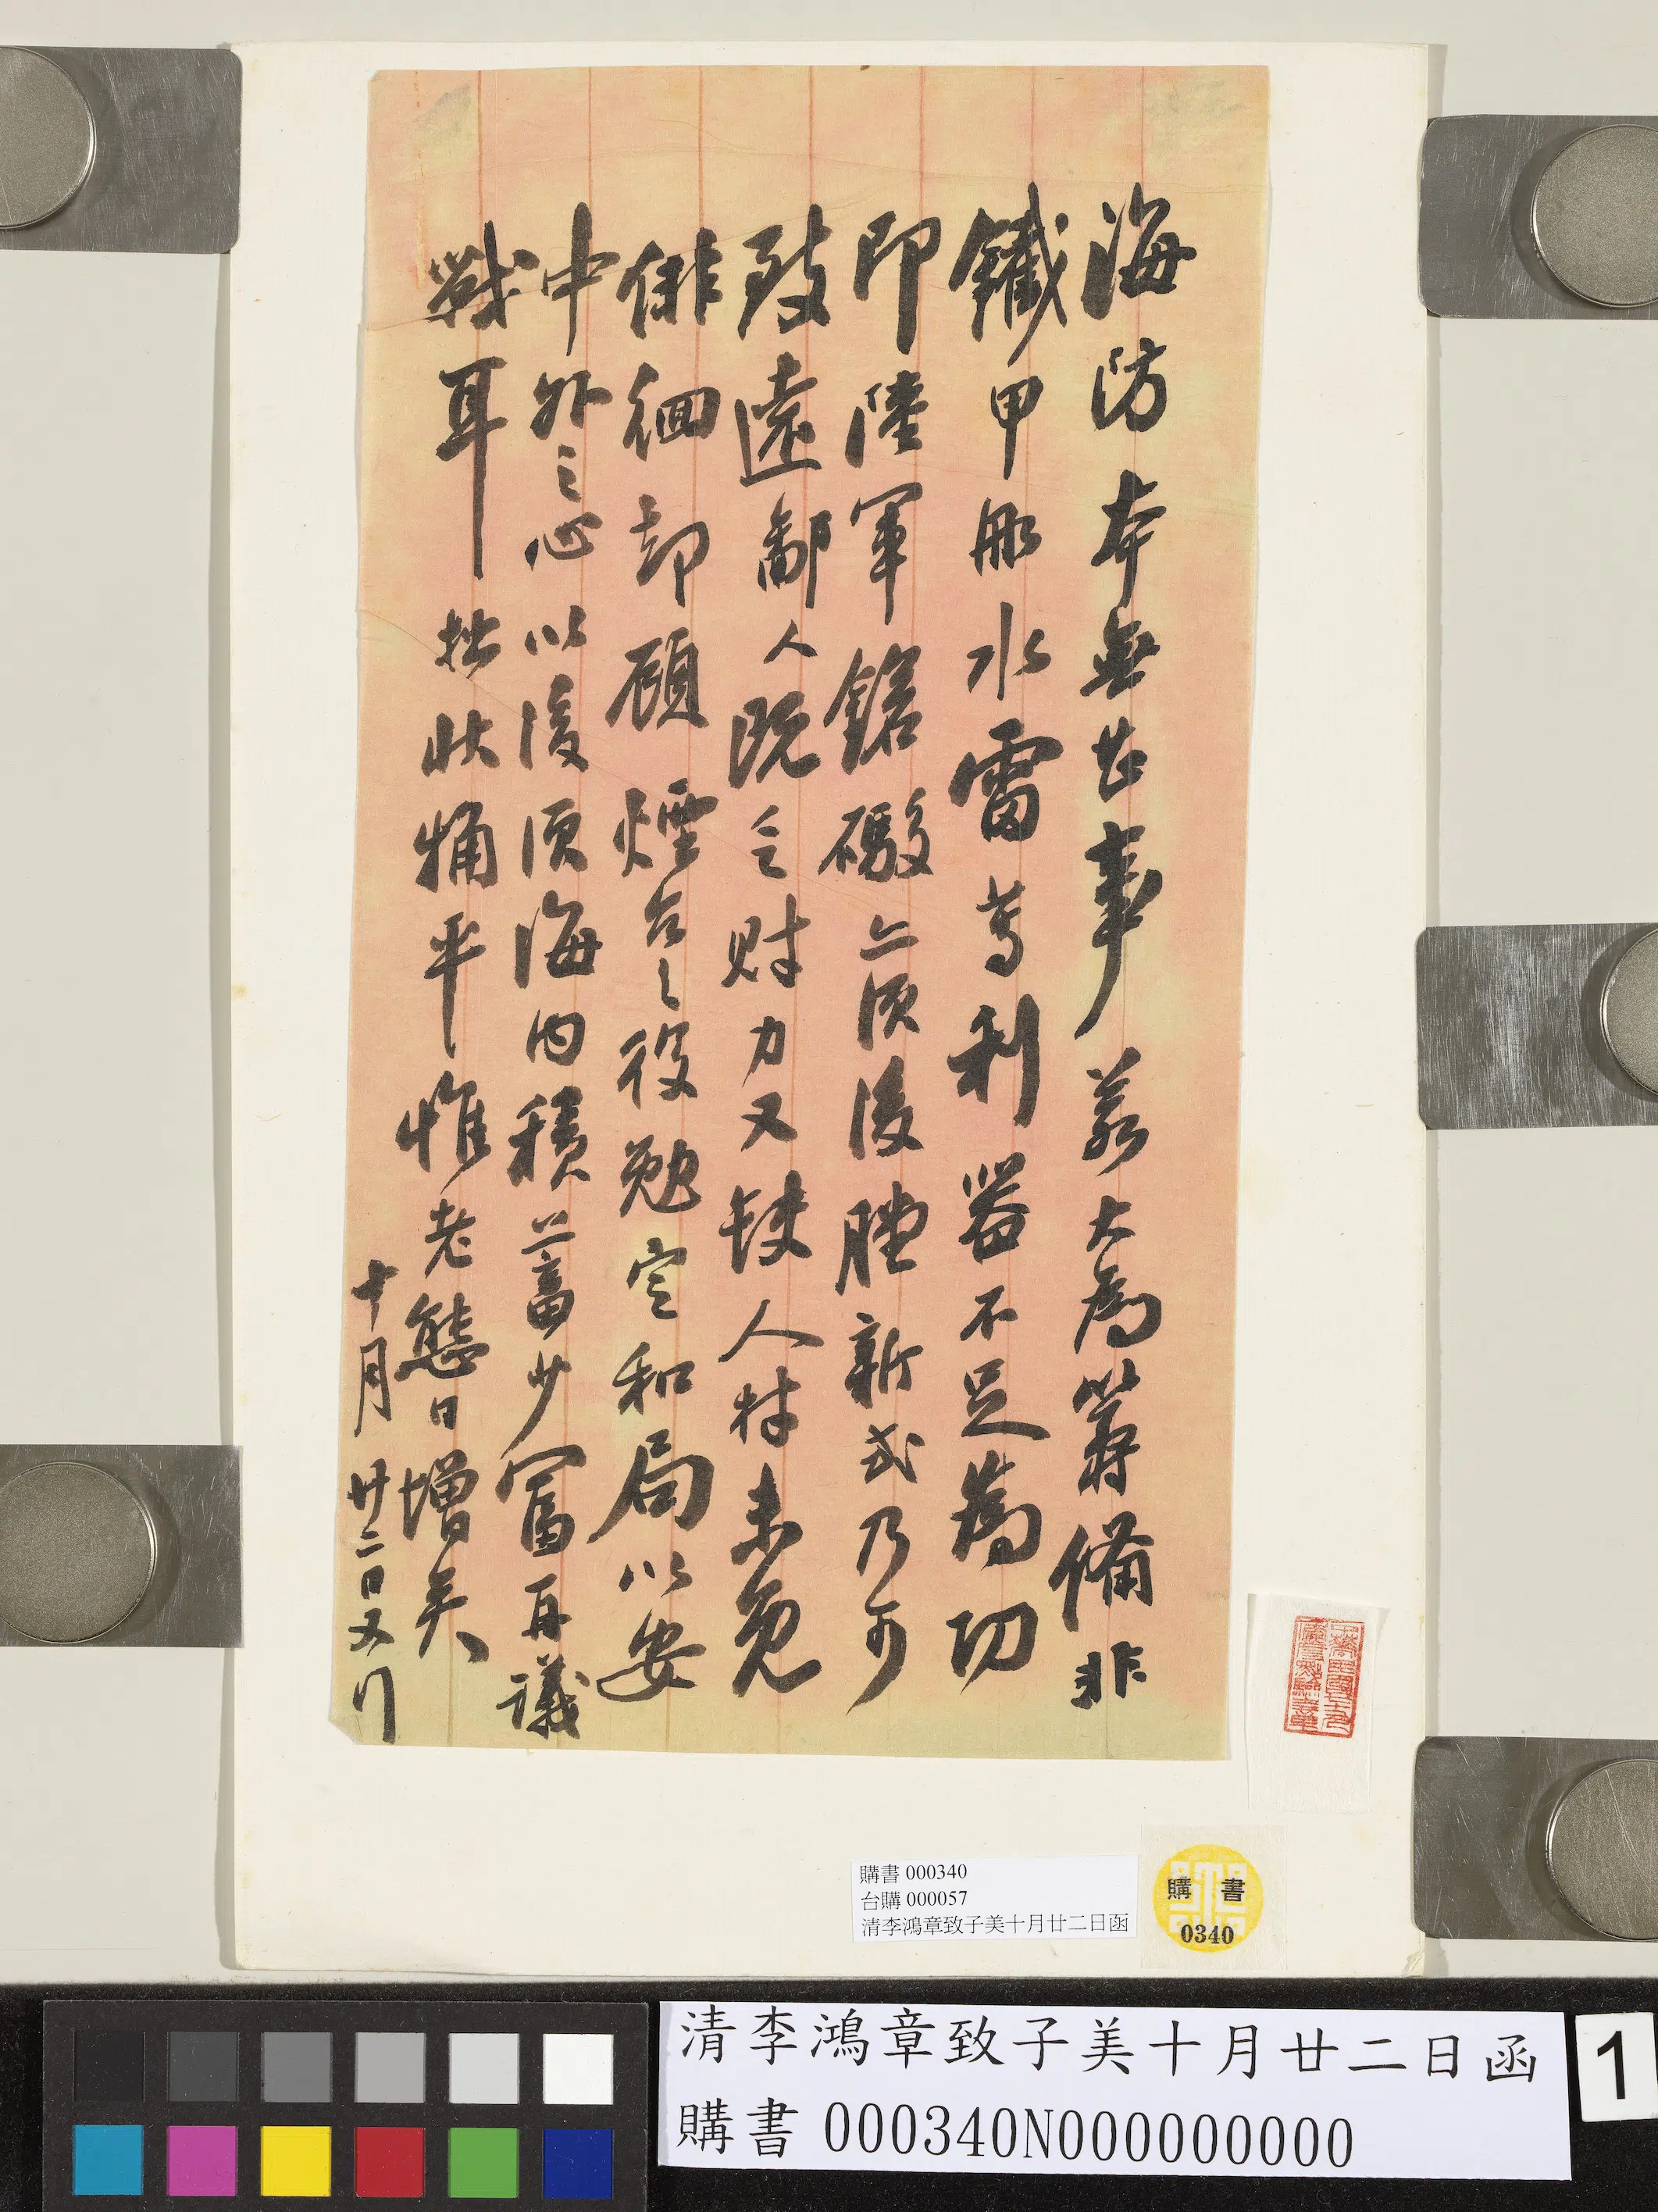 海防本無甚事若大為籌備非
鐵甲船水雷等利器不足為功
即陸軍鎗礮亦須後膛新式乃可
致遠鄙人既乏財力又缺人材未免
俳徊却顧煙台之役勉定和局以安
中外之心以後須海内積蓄少富再議
戰耳拙狀慵平惟老態日增矣
十月廿二日又行
購書 000340
台購 000057
清李鴻章致子美十月廿二日函
購書
0340
清李鴻章致子美十月廿二日函
購書 000340N000000000
1